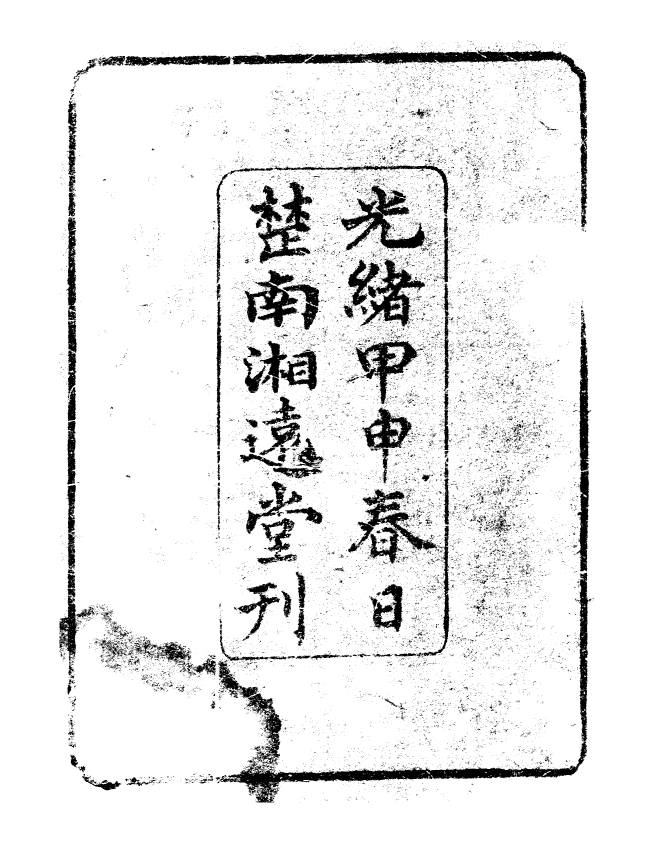 光緒甲申春日
楚南湘遠堂刊